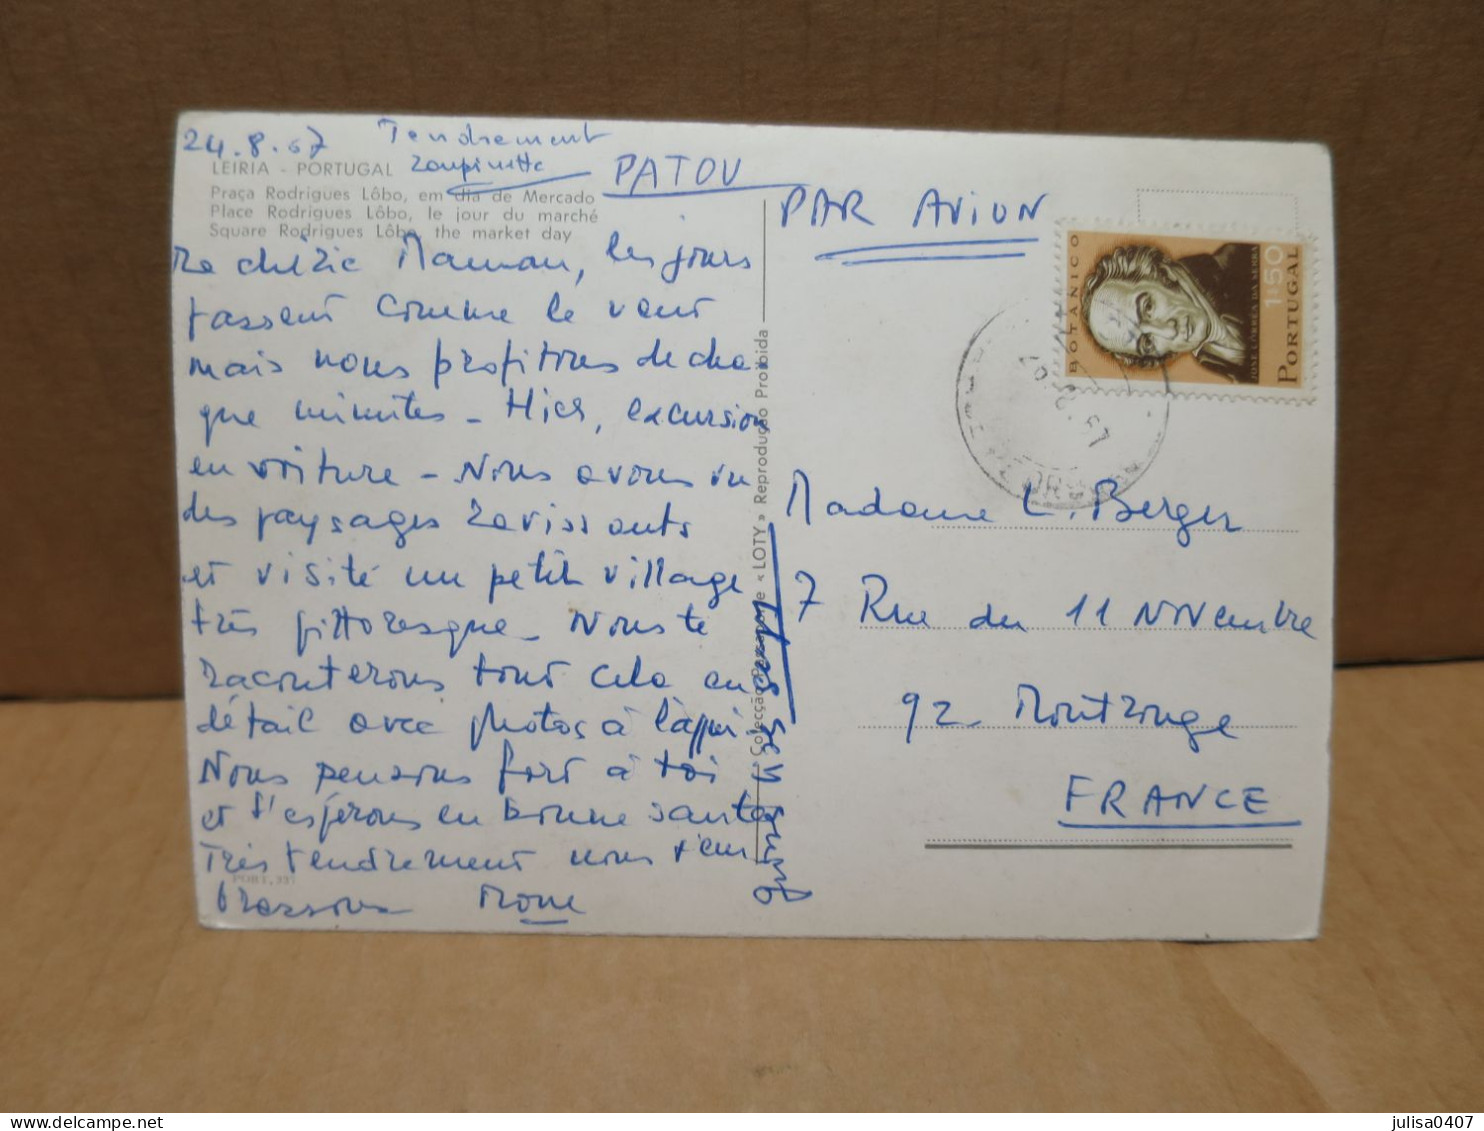 24.8.67 Tendrement
LEIRIA - PORTUGAL
PATOU
Praça Rodrigues Lôbo, em dia de Mercado
Place Rodrigues Lôbo, le jour du marché
Square Rodrigues Lôbo, the market day
Ma chérie Maman, les jours
passent comme le vent
mais nous profitons de cha-
que minutes - Hier, excursion
en voiture - Nous avons vu
des paysages ravissants
et visité un petit village
très pittoresque - Nous te
raconterons tout cela en
détail avec photos à l'appui
Nous pensons fort à toi
et t'espérons en bonne santé
Très tendrement nous t'em
brassons
PORT. 337
Colecção « LOTY » Reprodução Proibida
PAR AVION
BOTÂNICO
JOSÉ CORRÊA DA SERRA
1$50
PORTUGAL
Madame L. Berger
7 Rue du 11 Novembre
92 Montrouge
FRANCE
julisa0407